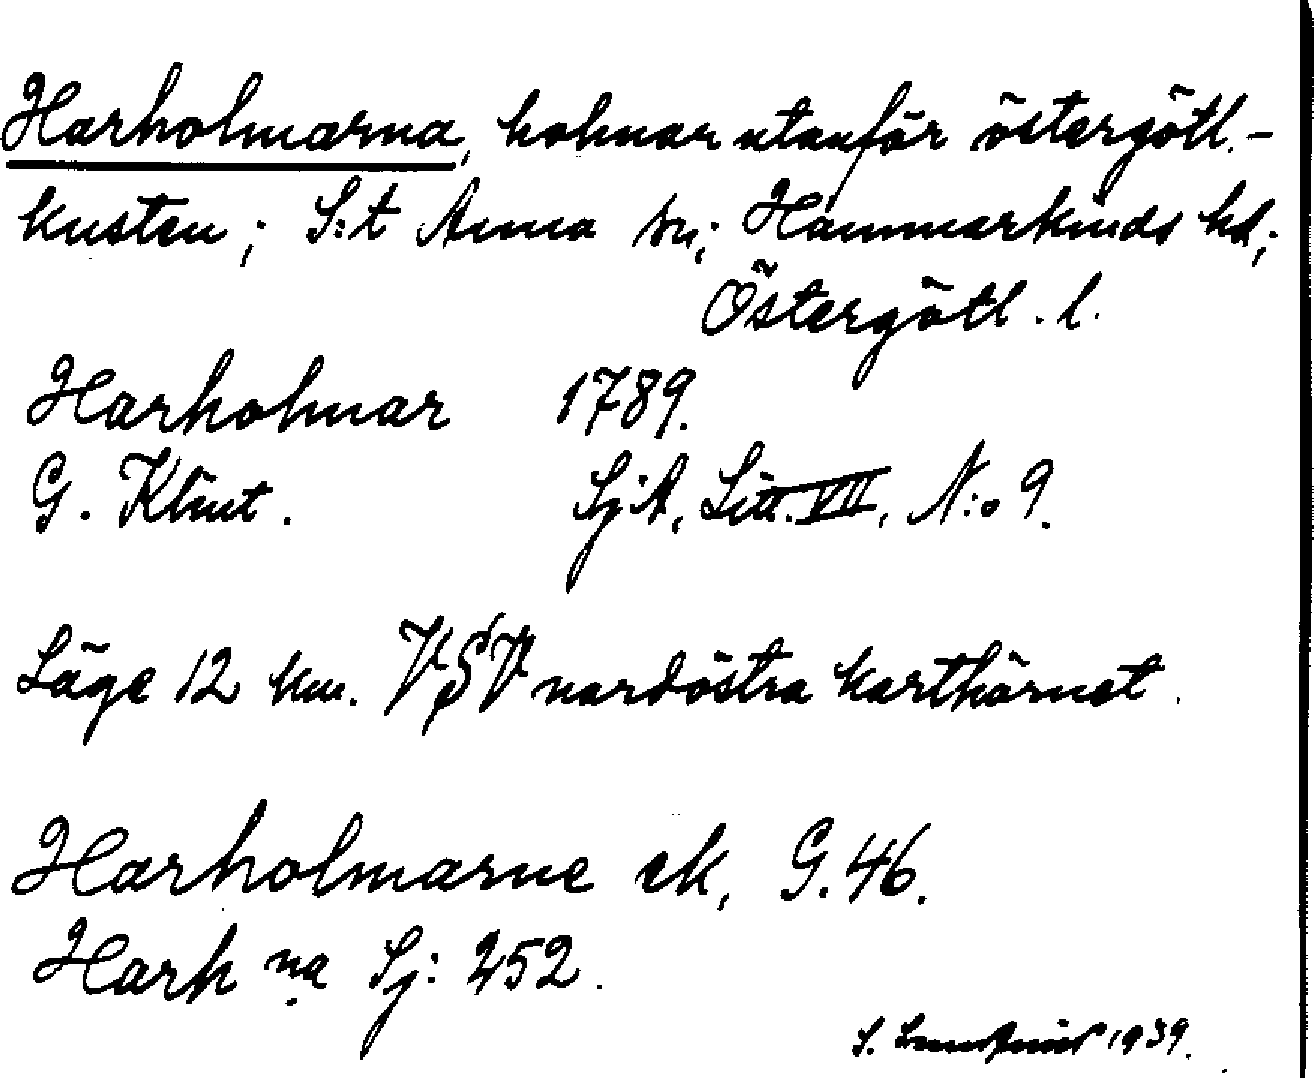 Harholmarna, holmar utanför östergötl.-
kusten; S:t Anna sn; Hammarkinds hd;
Östergötl. l.
Harholmar 1789.
G. Klint. SjA, Litt. VII, N:o 9.
Läge 12 km. VSV nordöstra karthörnet.
Harholmarne ek, G. 46.
Harh na Sj: 252.
S. 1939.